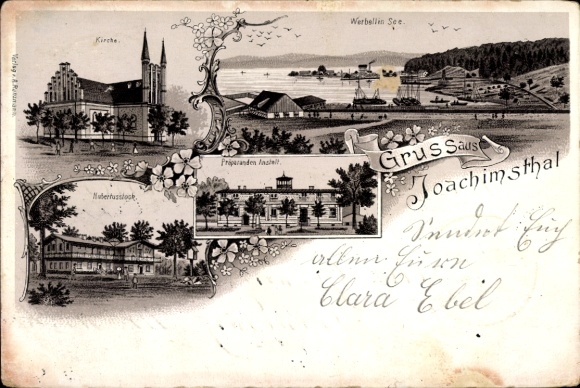 Kirche.
Werbellin See.
Verlag v.
Präparanden Anstalt.
Gruss aus
Joachimsthal
Hubertusstock.
Sendet Euch
allen Eure
Clara Ebel